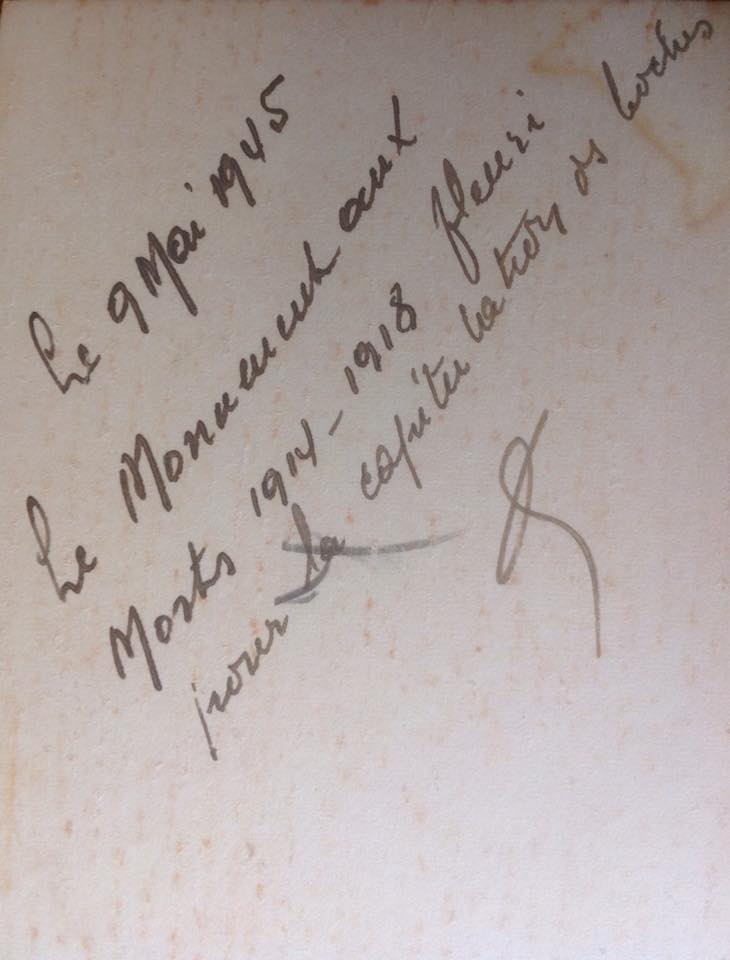 Le 9 Mai 1945
Le Monument aux
Morts 1914-1918 fleuri
pour la capitulation des boches